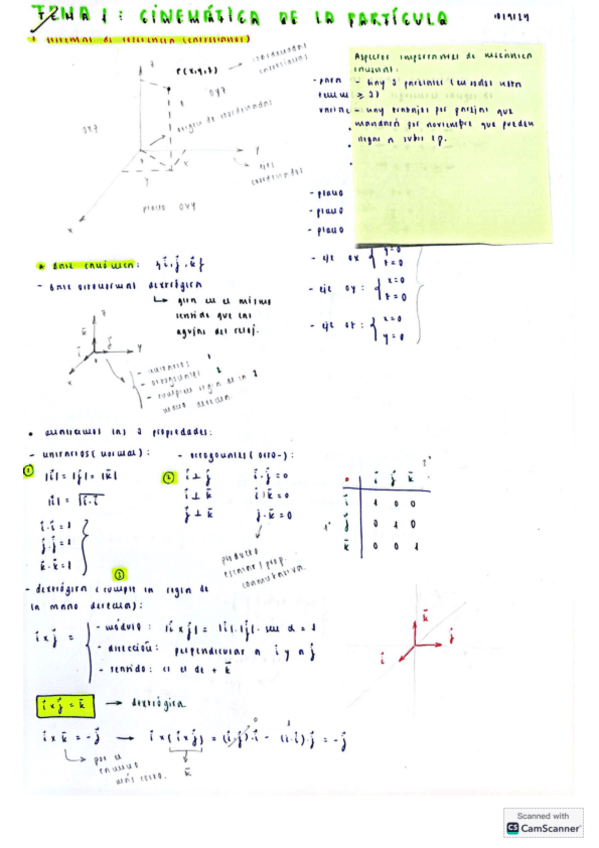 TEMA 1: CINEMÁTICA DE LA PARTÍCULA
sistemas de referencia (cartesianas)
z
P(x,y,z) → coordenadas cartesianas
origen de coordenadas
y
x
ejes coordenados
plano OXY
Aspectos importantes de mecánica
- hay 2 parciales
≥
- hay trabajos por parejas que
mandará por noviembre que pueden
llegar a subir 1p.
- para
- plano
- plano
- plano
- eje OX { y=0
z=0
- eje OY: { x=0
z=0
- eje OZ: { x=0
y=0
* Base canónica: {i, j, k}
- base ortonormal dextrógira
↳ gira en el mismo
sentido que las
agujas del reloj.
z
k
i
j
x
y
- unitarios 1
- ortogonales 2
- cumplen regla de la 3
mano derecha
• analicemos las 3 propiedades:
- unitarios (normal):
① |i| = |j| = |k|
|i| = √i·i
i·i=1
j·j=1
k·k=1
- ortogonales (orto-):
② i ⊥ j i·j=0
i ⊥ k i·k=0
j ⊥ k j·k=0
producto
escalar / prop.
conmutativa.
• i j k
i 1 0 0
j 0 1 0
k 0 0 1
③
- dextrógira (cumple la regla de
la mano derecha):
i x j =
- módulo: |i x j| = |i|·|j|· sen α = 1
- dirección: perpendicular a i y a j
- sentido: es el de + k
k
j
i
i x j = k → dextrógira
i x k = -j → i x (i x j) = (i·j)·i - (i·i)·j = -j
0
1
k
↳ por el
camino
más corto.
Scanned with
CS CamScanner